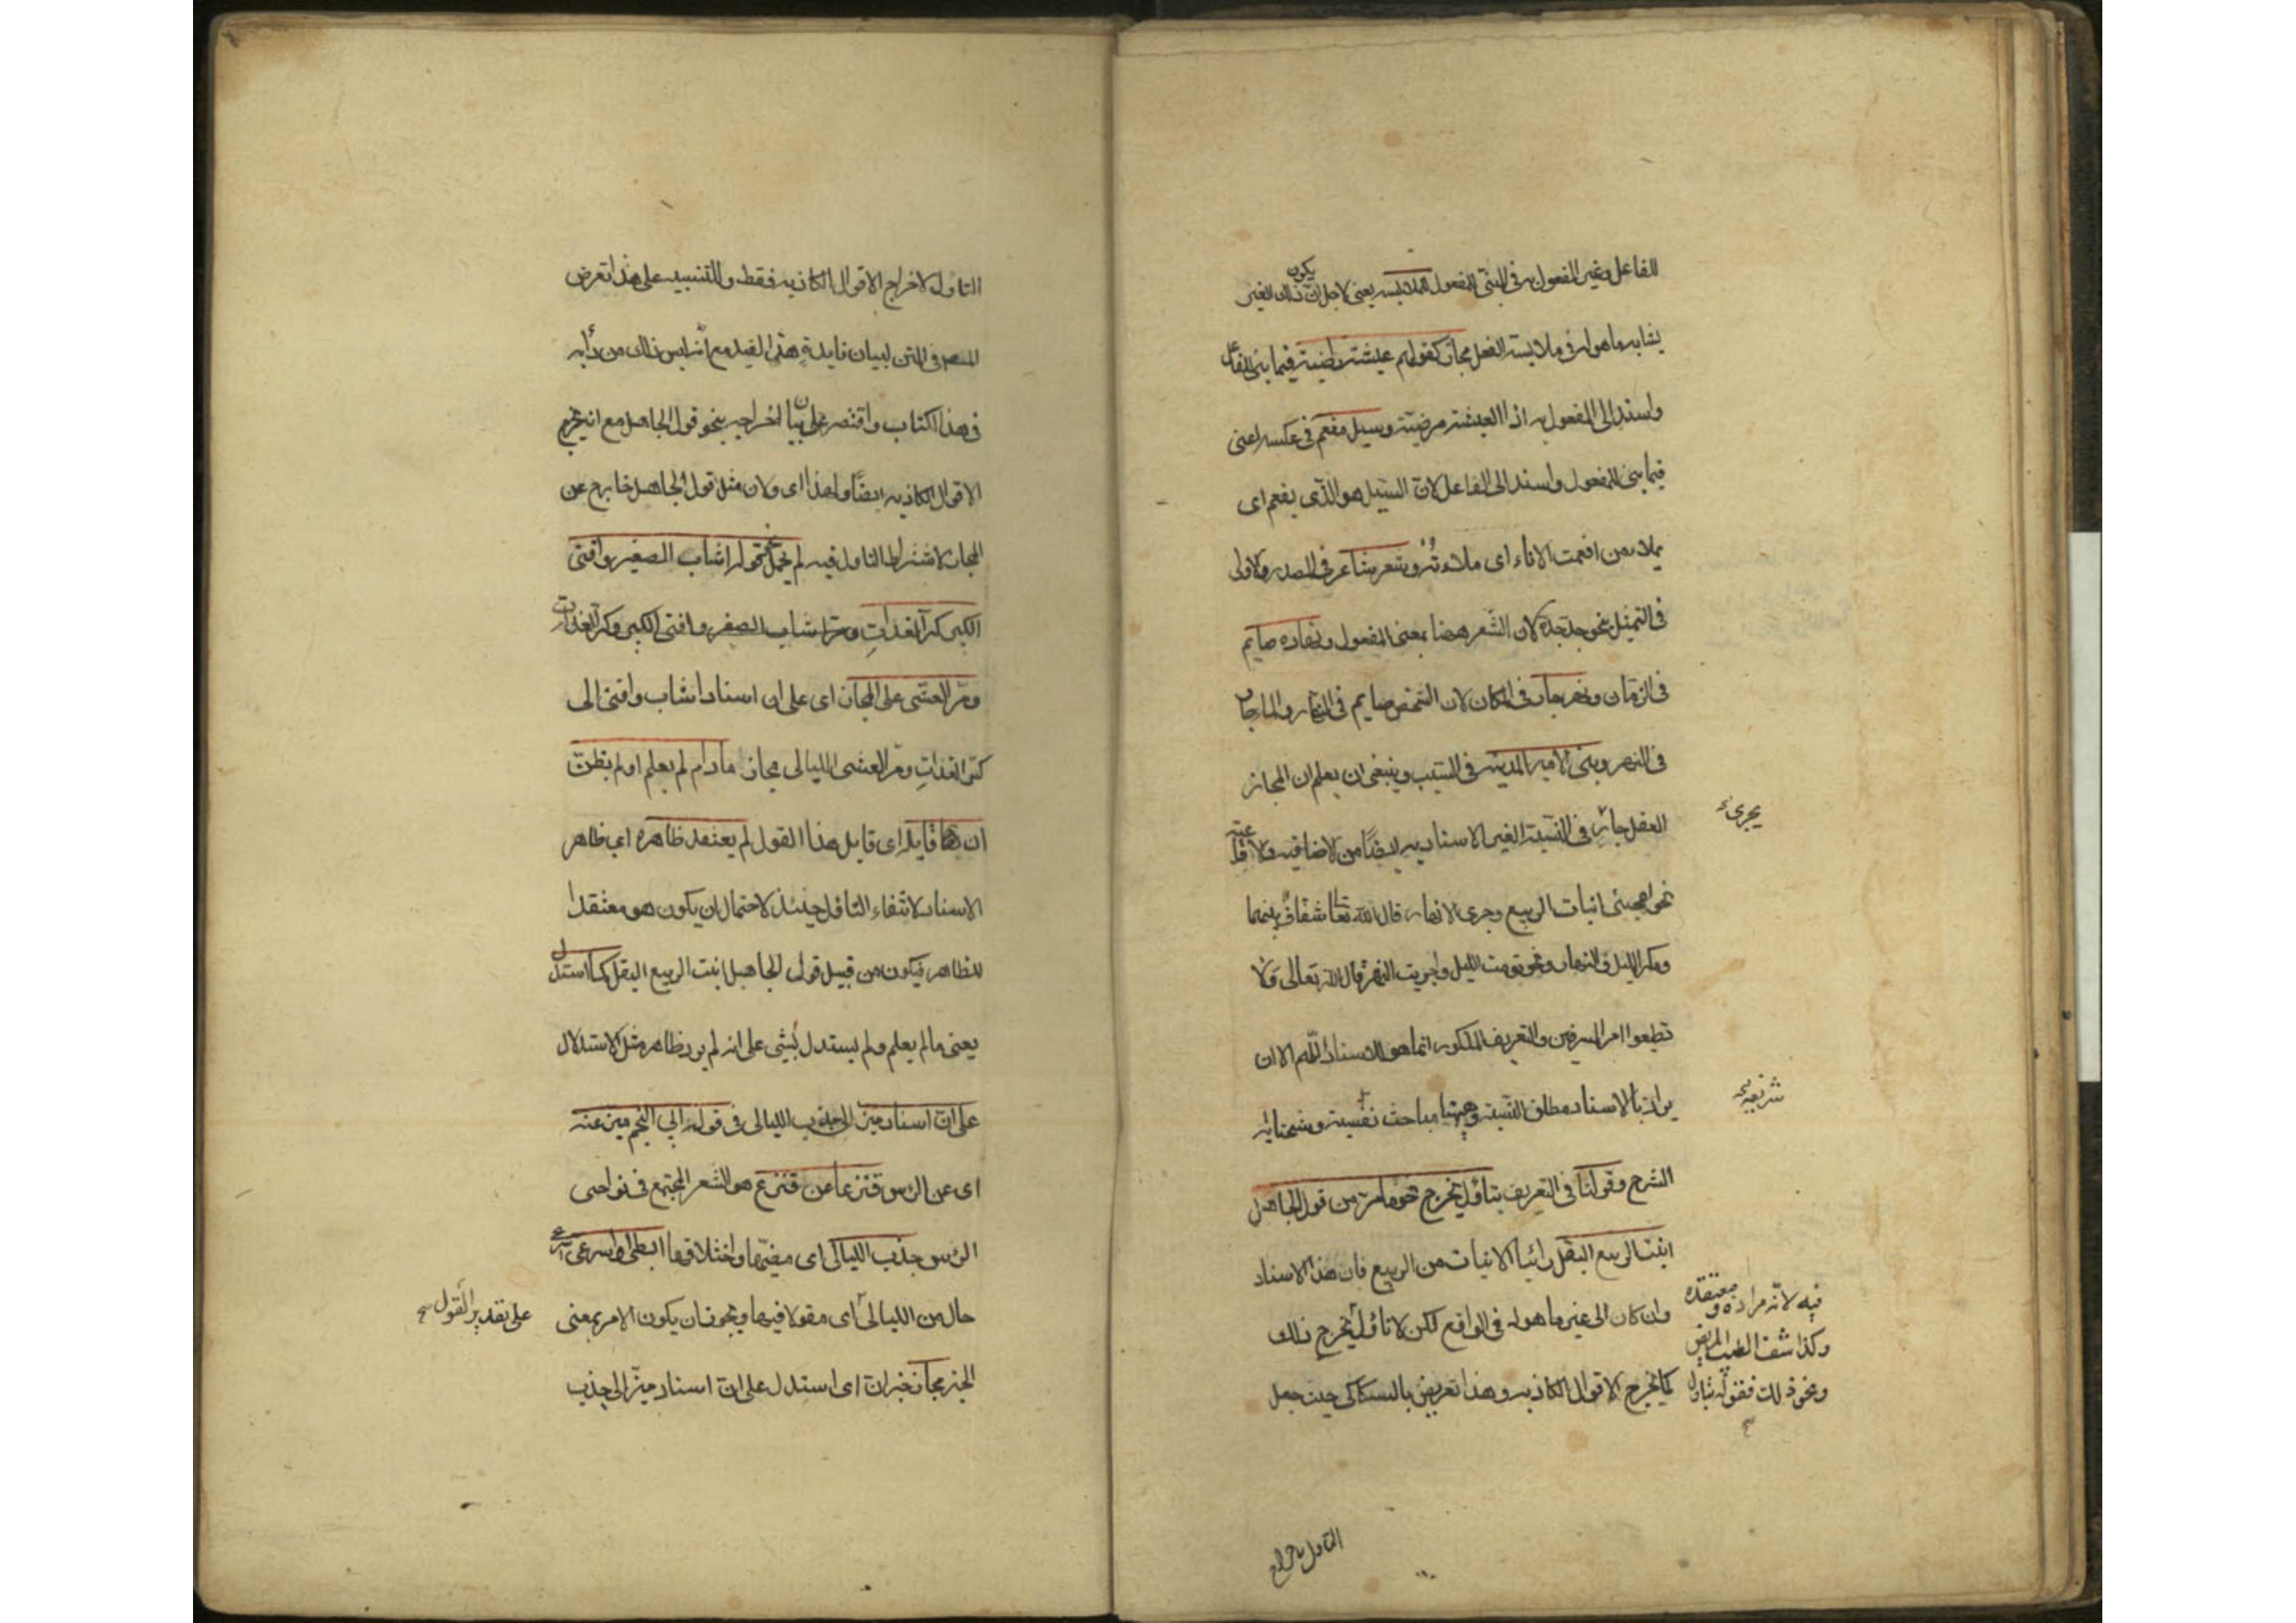 للفاعل وغير المفعول به في المبنى للمفعول للملابسة يعنى لاجل ان يكون ذلك الغير
يشابه ما هو له في ملابسة الفعل مجاز كقولهم عيشة راضية فيما بنى للفاعل
واسند الى المفعول به اذ العيشة مرضية وسيل مفعم في عكسه اعنى
فيما بنى للمفعول واسند الى الفاعل لان السيل هو الذى يفعم اى
يملاء من افعمت الاناء اى ملاءته وشعر شاعر في المصدر والاولى
في التمثيل بنحو جد جده لان الشعر ههنا بمعنى المفعول ونهاره صايم
في الزمان ونهر جار في المكان لان الشخص صايم في النهار والماء جار
في النهر وبنى الامير المدينة في السبب وينبغى ان يعلم ان المجاز
العقلى جائز في النسبة الغير الاسنادية ايضًا من الاضافية والايقاعية
يجرى
نحو اعجبنى انبات الربيع وجرى الانهار قال الله تعا شقاق بينهما
ومكر الليل والنهار ونحو نومت الليل واجريت النهر قال الله تعالى ولا
تطيعوا امر المسرفين والتعريف المذكور انما هو للاسناد اللهم الا ان
يراد بالاسناد مطلق النسبة وههنا مباحث نفيسة وشحنا به
شريفه
الشرح وقولنا في التعريف بتاول يخرج نحو ما مر من قول الجاهل
انبت الربيع البقل رائيا الانبات من الربيع فان هذا الاسناد
وان كان الى غير ما هو له في الواقع لكن لا تاول يخرج ذلك
كما يخرج الاقوال الكاذبه وهذا تعريض بالسكاكى حيث جعل
فيه لانه مراده ومعتقده
وكذا شفا الطبيب المريض
ونحو ذلك فقوله بتاول
التاول لاخراج
التاول لاخراج الاقوال الكاذبه فقط وللتنبيه على هذا تعرض
المصـ في المتن لبيان فايدة هذا القيد مع انه ليس ذلك من دأبه
في هذا الكتاب واقتصر على بيان اخراجه بنحو قول الجاهل مع انه يخرج
الاقوال الكاذبه ايضًا ولهذا اى ولان مثل قول الجاهل خارج عن
المجاز لاشتراط التاول فيه لم يحمل نحو قوله اشاب الصغير وافنى
الكبير كر الغداة ومر اشاب الصغير وافنى الكبير وكر الغداة
ومر العشى على المجاز اى على ان اسناد اشاب وافنى الى
كر الغداة ومر العشى الليالى مجاز مادام لم يعلم او لم يظن
ان قايله اى قايل هذا القول لم يعتقد ظاهره اى ظاهر
الاسناد لانتفاء التاول حينئذ لاحتمال ان يكون هو معتقدا
للظاهر فيكون من قبيل قول الجاهل انبت الربيع البقل كما استدل
يعنى ما لم يعلم ولم يستدل بشئ على انه لم يرد ظاهره مثل الاستدلال
على ان اسناد ميز الى جذب الليالى في قول ابى النجم ميز عنه
اى عن الرأس قنزعا عن قنزع هو الشعر المجتمع في نواحى
الرأس جذب الليالى اى مضيها واختلافها ابطئى او اسرعى
حال من الليالى اى مقولا فيها ويجوز ان يكون الامر بمعنى
على تقدير القول صح
الخبر مجاز خبر ان اى استدل على ان اسناد ميز الى جذب